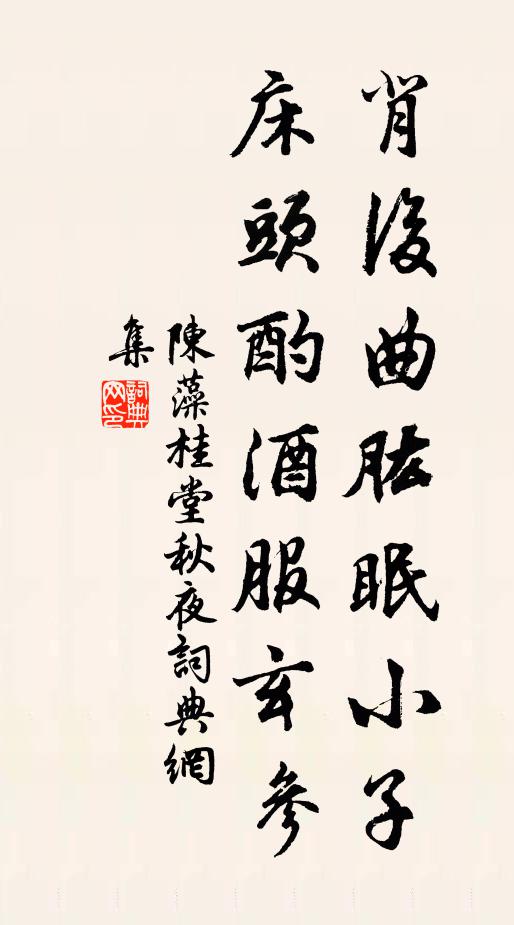 背後曲肱眠小子
床頭酌酒服玄參
陳藻桂堂秋夜詞典網
集
詞典網印